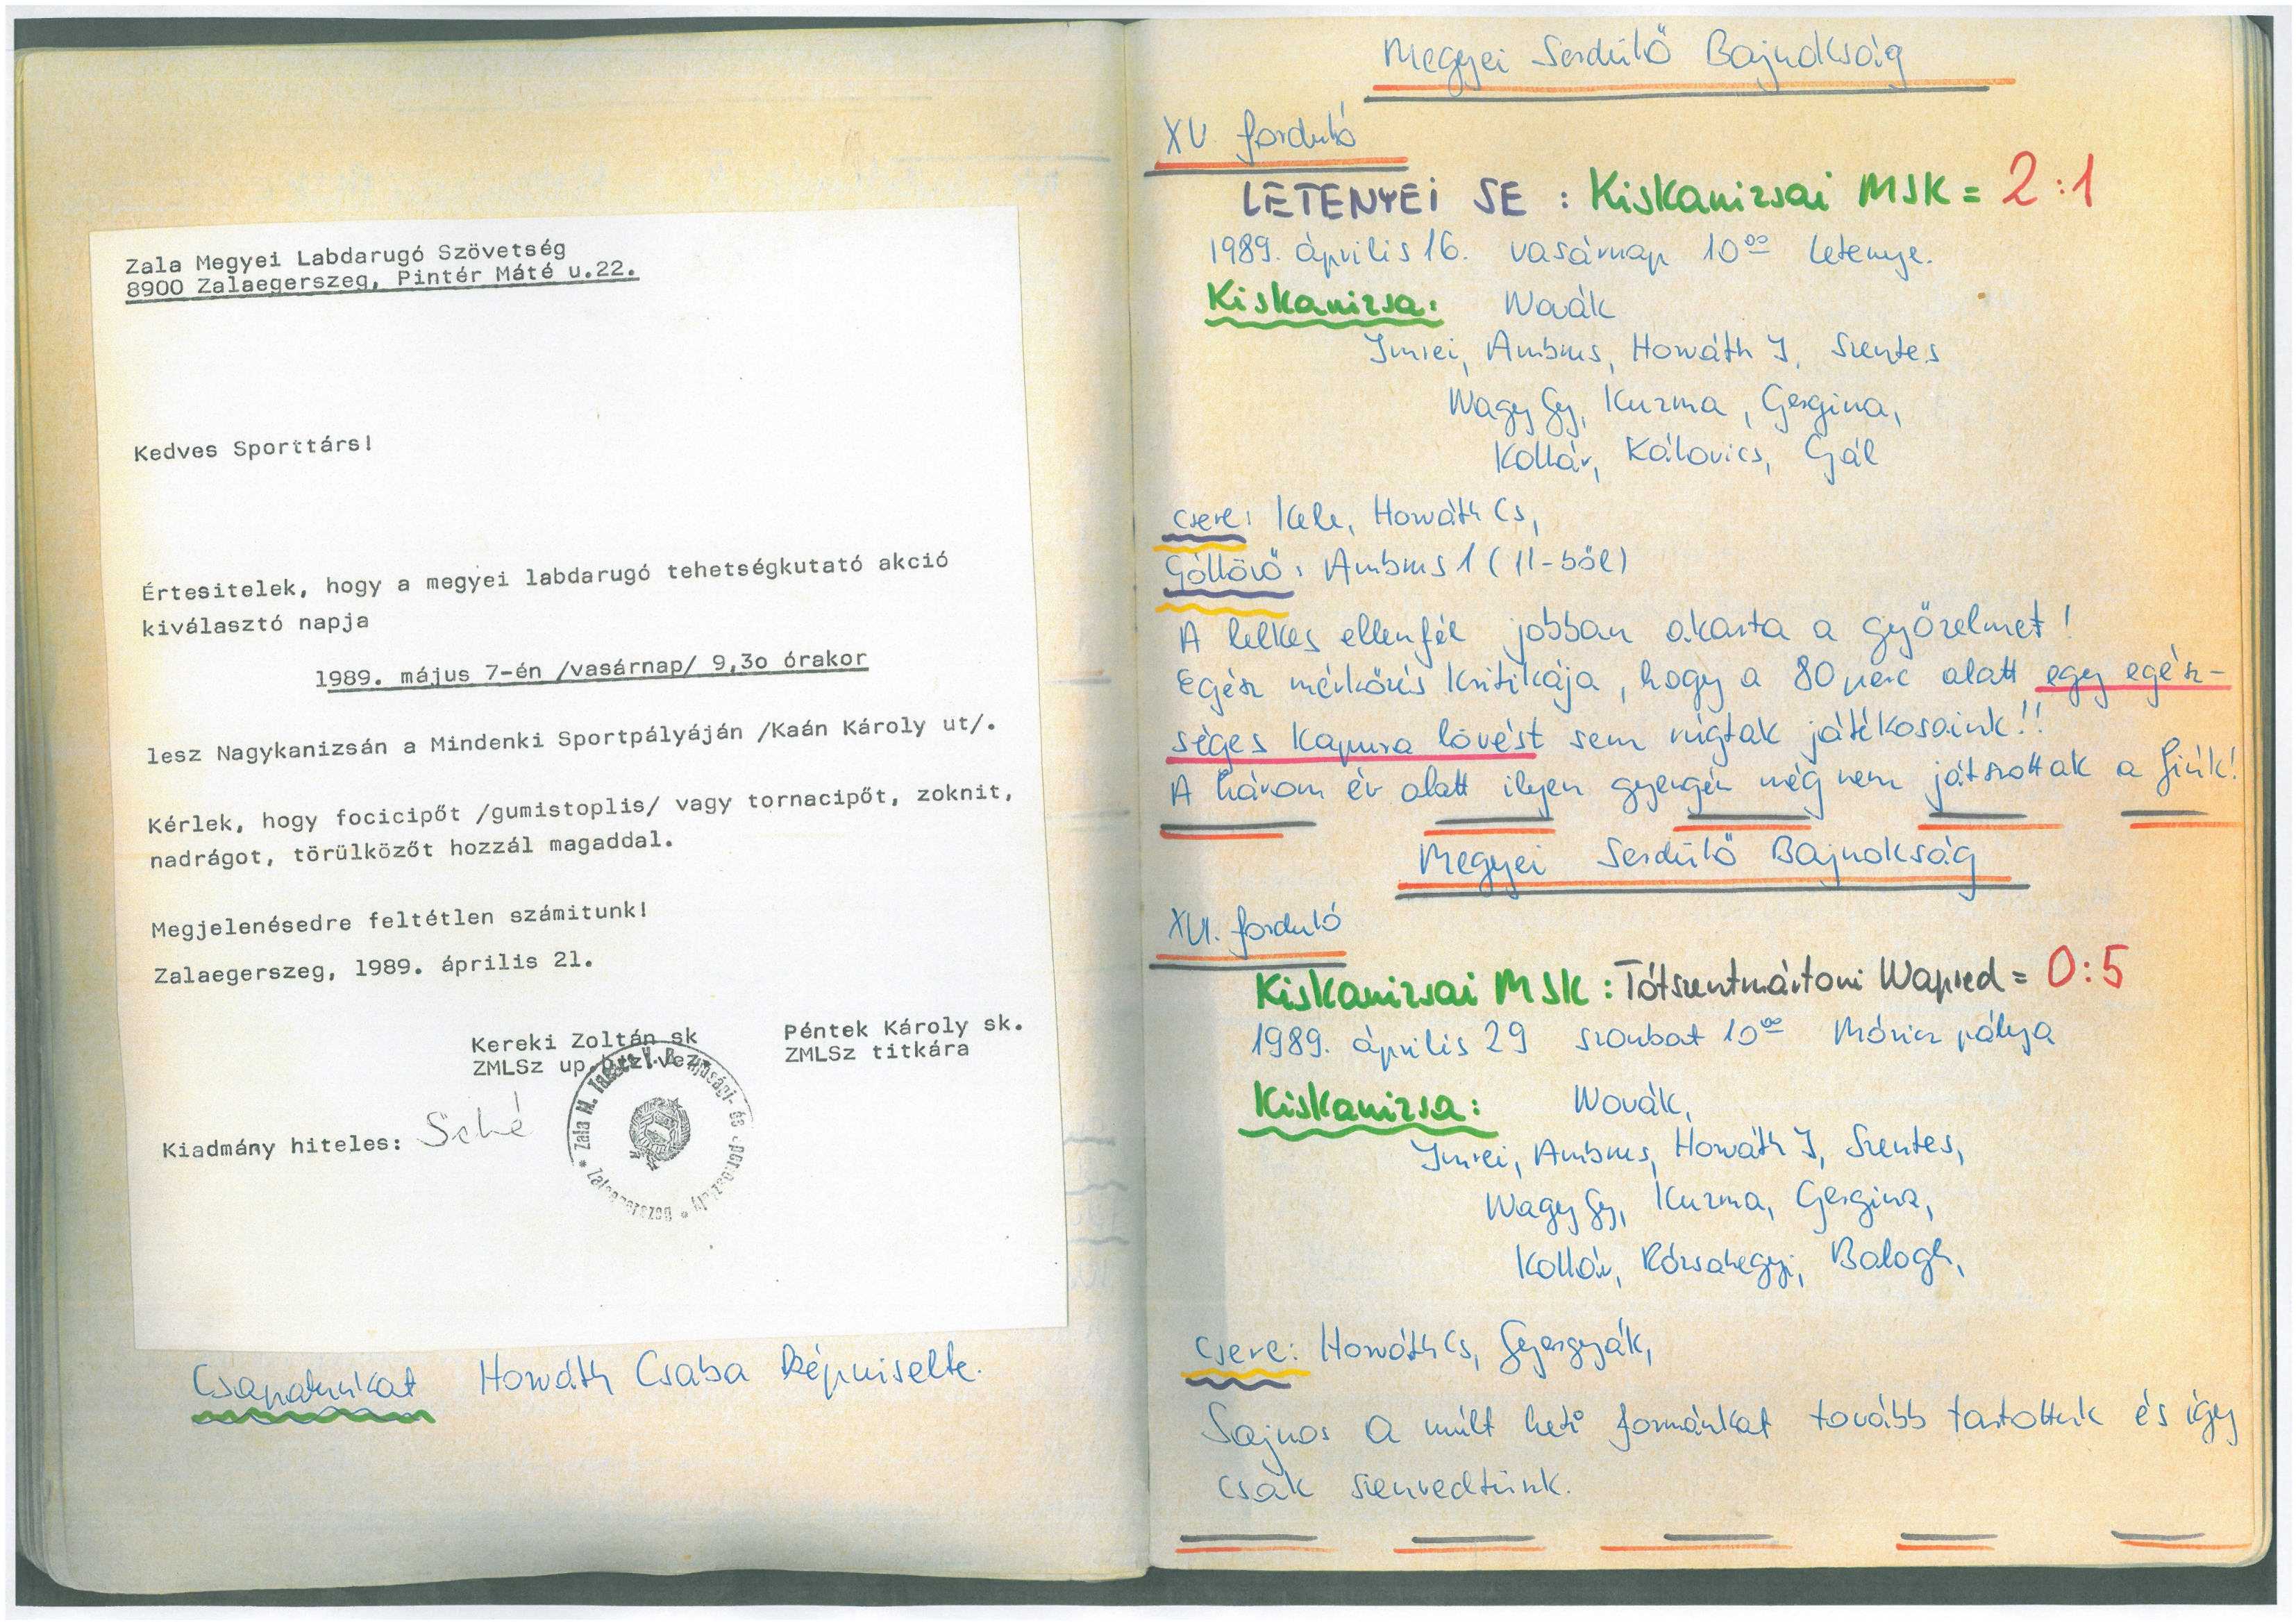 Zala Megyei Labdarugó Szövetség
8900 Zalaegerszeg, Pintér Máté u.22.
Kedves Sporttárs!
Értesitelek, hogy a megyei labdarugó tehetségkutató akció
kiválasztó napja
1989. május 7-én /vasárnap/ 9,3o órakor
lesz Nagykanizsán a Mindenki Sportpályáján /Kaán Károly ut/.
Kérlek, hogy focicipőt /gumistoplis/ vagy tornacipőt, zoknit,
nadrágot, törülközőt hozzál magaddal.
Megjelenésedre feltétlen számitunk!
Zalaegerszeg, 1989. április 21.
Kereki Zoltán sk
ZMLSz up.
Péntek Károly sk.
ZMLSz titkára
Kiadmány hiteles:
Zala M. Tanács V. B. Ifjúsági- és Sportosztály * Zalaegerszeg *
Csapatunkat Horváth Csaba képviselte.
Megyei Serdülő Bajnokság
XV forduló
LETENYEI SE : Kiskanizsai MSK = 2:1
1989. április 16. vasárnap 10⁰⁰ Letenye.
Kiskanizsa: Novák
Imrei, Ambrus, Horváth I, Szentes
Nagy Gy, Kuzma, Gergina,
Kollár, Kálovics, Gál
csere: Kele, Horváth Cs,
Góllövő: Ambrus 1 (11-ből)
A lelkes ellenfél jobban akarta a győzelmet!
Egész mérkőzés kritikája, hogy a 80 perc alatt egy egész-
séges kapura lövést sem rúgtak játékosaink!!
A három év alatt ilyen gyengén még nem játszottak a fiúk!
Megyei Serdülő Bajnokság
XVI. forduló
Kiskanizsai MSK : Tótszentmártoni Napred = 0:5
1989. április 29 szombat 10⁰⁰ Móricz pálya
Kiskanizsa: Novák,
Imrei, Ambrus, Horváth I, Szentes,
Nagy Gy, Kuzma, Gergina,
Kollár, Rózsahegyi, Balogh,
Csere: Horváth Cs, Gyergyák,
Sajnos a múlt heti formánkat tovább tartottuk és így
csak szenvedtünk.